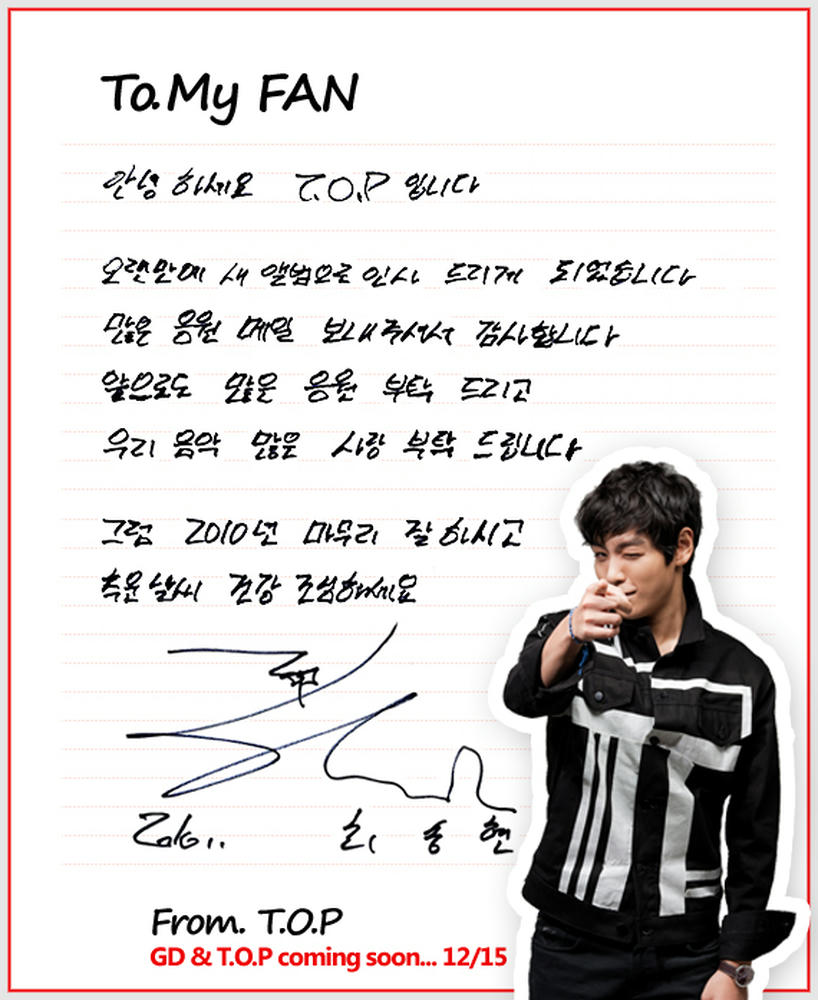 To. My FAN
안녕 하세요 T.O.P 입니다
오랜만에 새 앨범으로 인사 드리게 되었습니다
많은 응원 메일 보내주셔서 감사합니다
앞으로도 많은 응원 부탁 드리고
우리 음악 많은 사랑 부탁 드립니다
그럼 2010년 마무리 잘 하시고
추운 날씨 건강 조심하세요
최 승 현
From. T.O.P
GD & T.O.P coming soon... 12/15